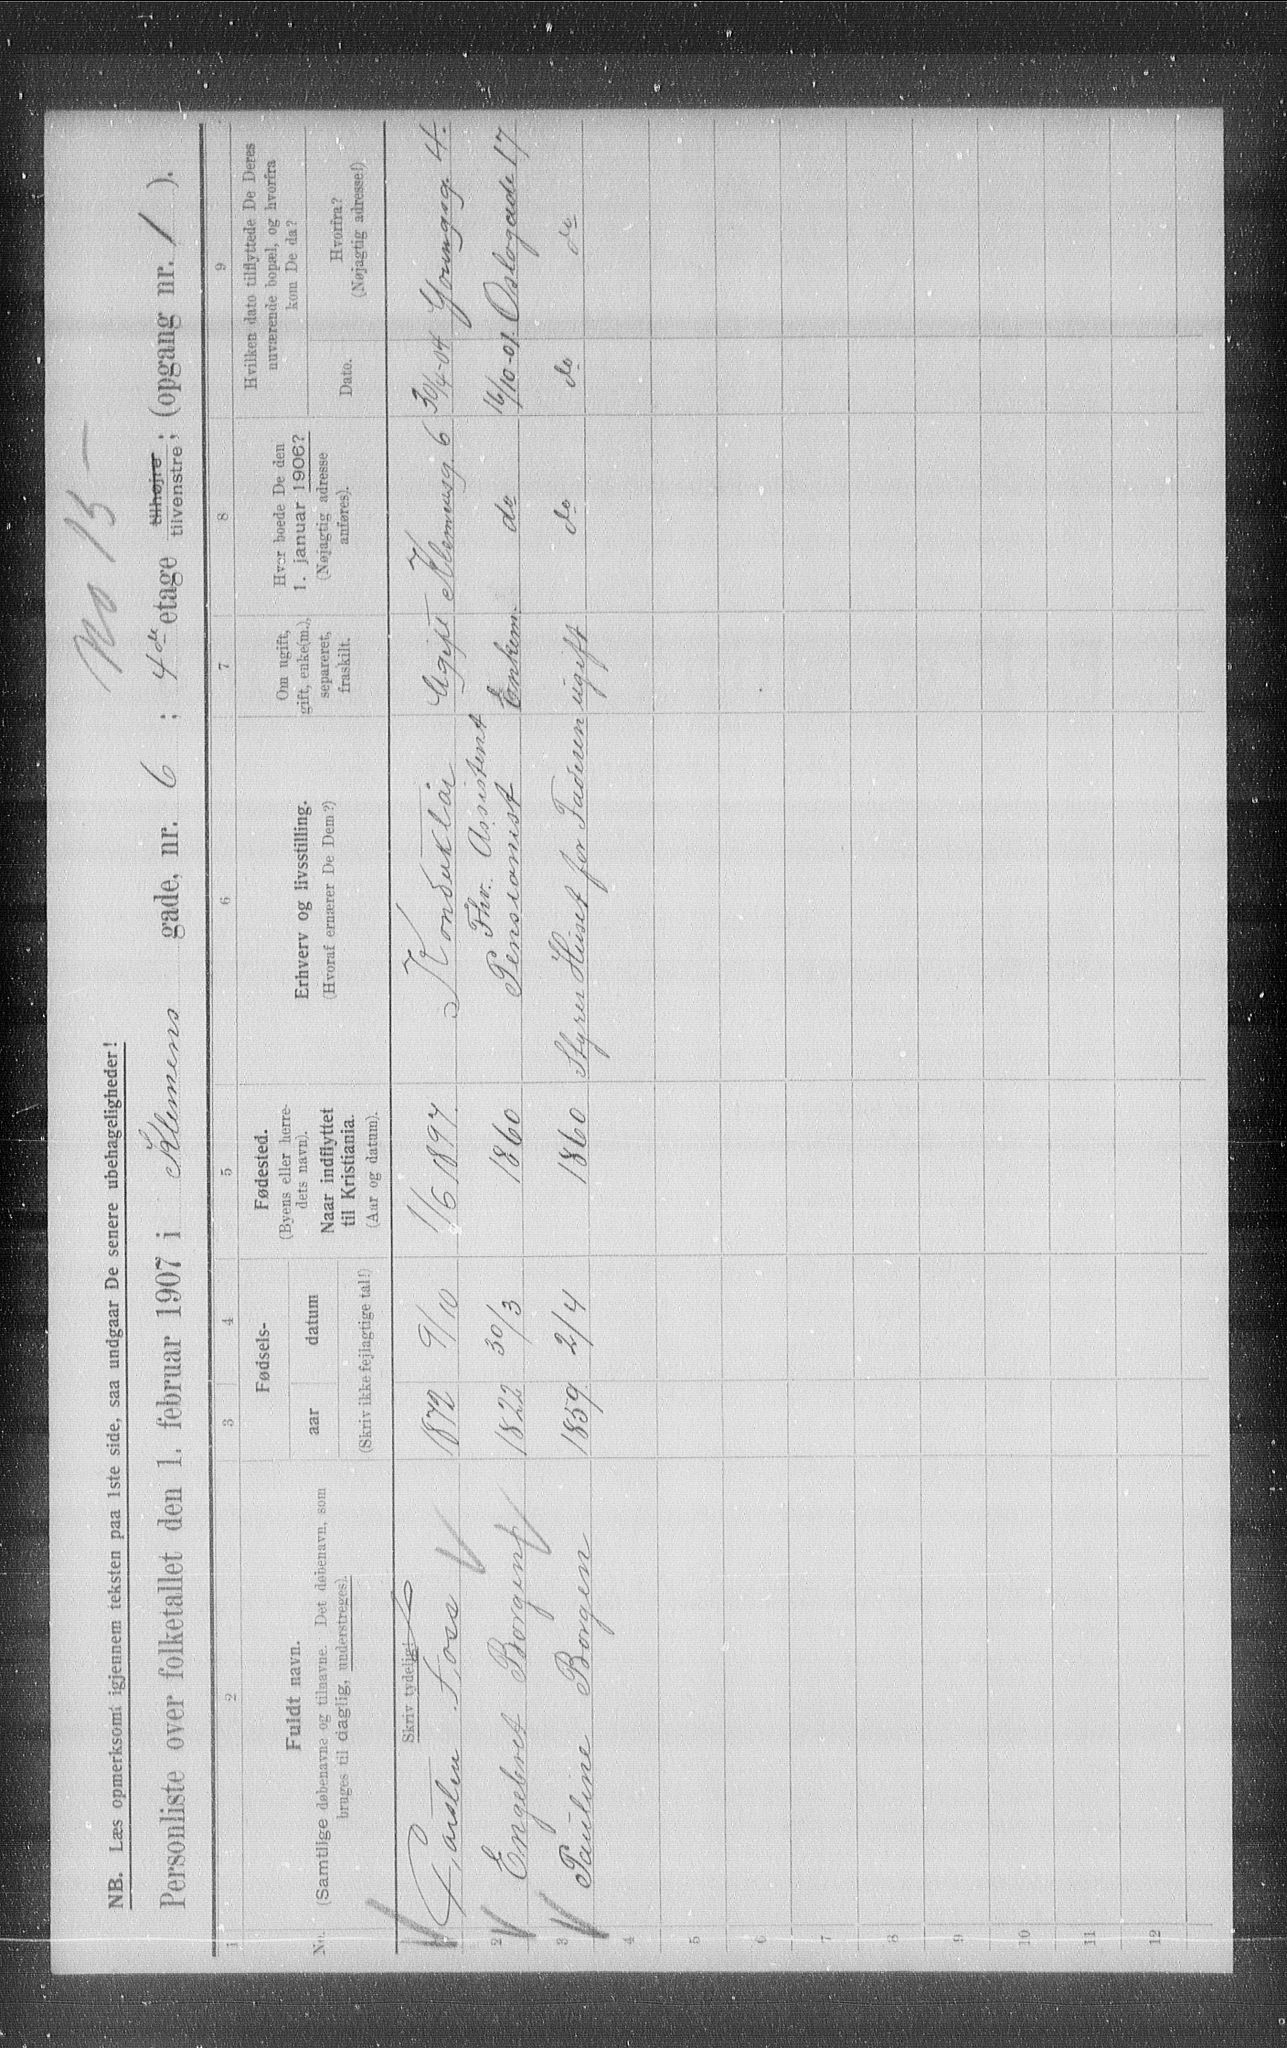 No 15 —
NB. Læs opmerksomt igjennem teksten paa 1ste side, saa undgaar De senere ubehageligheder!
Personliste over folketallet den 1. februar 1907 i Klemens gade, nr. 6 ; 4de etage tilhøjre ; tilvenstre; (opgang nr. 1 ).
1 2 3 4 5 6 7 8 9
No.
Fuldt navn.
(Samtlige døbenavne og tilnavne. Det døbenavn, som
bruges til daglig, understreges).
Fødsels-
aar datum
(Skriv ikke fejlagtige tal!)
Fødested.
(Byens eller herre-
dets navn).
Naar indflyttet
til Kristiania.
(Aar og datum).
Erhverv og livsstilling.
(Hvoraf ernærer De Dem?)
Om ugift,
gift, enke(m.),
separeret,
fraskilt.
Hvor boede De den
1. januar 1906?
(Nøjagtig adresse
anføres).
Hvilken dato tilflyttede De Deres
nuværende bopæl, og hvorfra
kom De da?
Dato.
Hvorfra?
(Nøjagtig adresse!)
Skriv tydeligt!
1 Carsten Foss 1872 9/10 1/6 1897. Konduktør Ugift Klemensg. 6 30/4-04 Youngsg. 4.
Fhv. Assistent
2 Engebret Borgen 1822 30/3 1860 Pensionist Enkem. do 16/10-01. Oslogade 17
3 Pauline Borgen 1859 2/4 1860 Styrer Huset for Faderen ugift do do do
4
5
6
7
8
9
10
11
12